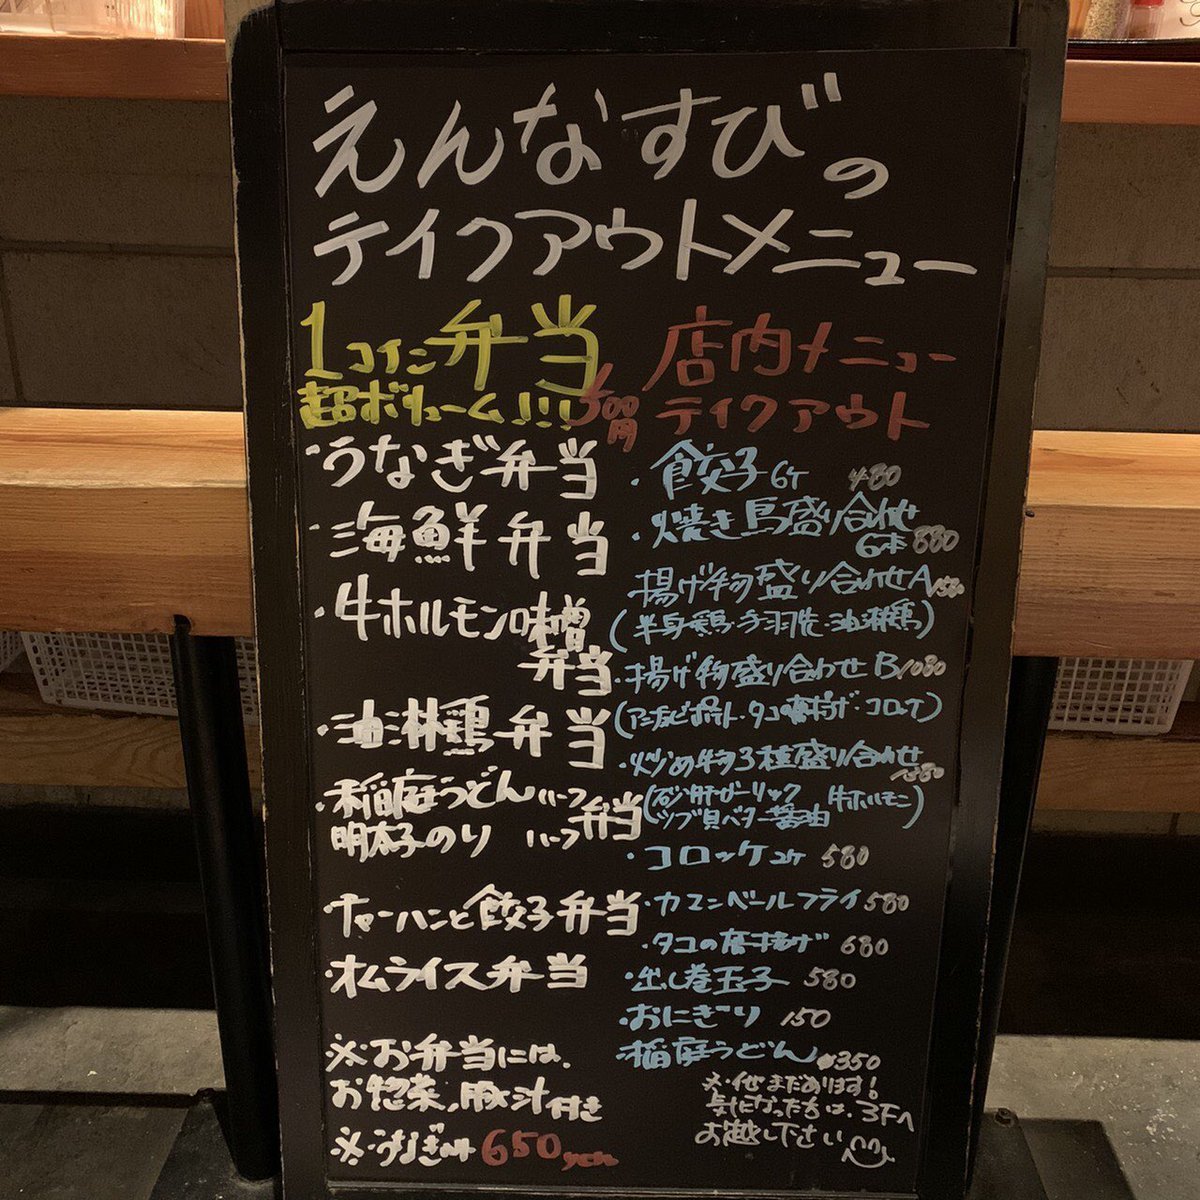 えんなすびの
テイクアウトメニュー
1コイン弁当
超ボリューム!!! 500円
・うなぎ弁当
・海鮮弁当
・牛ホルモン味噌
弁当
・油淋鶏弁当
・稲庭うどんハーフ弁当
明太子のり ハーフ
・チャーハンと餃子弁当
・オムライス弁当
※お弁当には、
お惣菜、豚汁付き
※うなぎのみ 650yen
店内メニュー
テイクアウト
・餃子6ケ 480
・焼き鳥盛り合わせ
6本 880
揚げ物盛り合わせA
(半身鶏・手羽先・油淋鶏)
・揚げ物盛り合わせB 1080
(アンチョビポテト・タコ唐揚げ・コロッケ)
・炒め物3種盛り合わせ
(砂肝ガーリック 牛ホルモン
ツブ貝バター醤油)
・コロッケ2ケ 580
・カマンベールフライ 580
・タコの唐揚げ 680
・出し巻玉子 580
・おにぎり 150
・稲庭うどん 350
※他まだあります!
気になった方は、3Fへ
お越し下さい